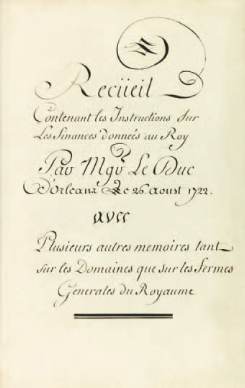 Recüeil
Contenant les Instructions sur
Les finances données au Roy
Par Mgr. Le Duc
D'Orleans Le 26 aoust 1722.
avec
Plusieurs autres memoires tant
sur les Domaines que sur les fermes
Generales du Royaume